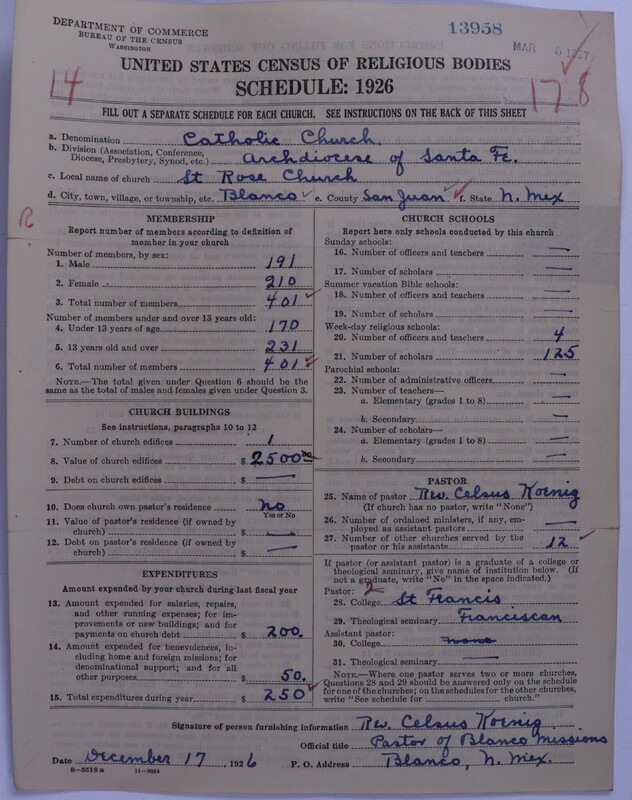 DEPARTMENT OF COMMERCE
BUREAU OF THE CENSUS
WASHINGTON
13958
MAR 5 1927
UNITED STATES CENSUS OF RELIGIOUS BODIES
SCHEDULE: 1926
14
178
FILL OUT A SEPARATE SCHEDULE FOR EACH CHURCH. SEE INSTRUCTIONS ON THE BACK OF THIS SHEET
a. Denomination Catholic Church.
b. Division (Association, Conference, Diocese, Presbytery, Synod, etc.) Archdiocese of Santa Fe.
c. Local name of church St Rose Church
d. City, town, village, or township, etc. Blanco e. County San Juan f. State N. Mex
R
MEMBERSHIP
Report number of members according to definition of
member in your church
Number of members, by sex:
1. Male 191
2. Female 210
3. Total number of members 401
Number of members under and over 13 years old:
4. Under 13 years of age 170
5. 13 years old and over 231
6. Total number of members 401
NOTE.—The total given under Question 6 should be the
same as the total of males and females given under Question 3.
CHURCH BUILDINGS
See instructions, paragraphs 10 to 12
7. Number of church edifices 1
8. Value of church edifices $ 2500 00
9. Debt on church edifices $ —
10. Does church own pastor's residence No
Yes or No
11. Value of pastor's residence (if owned by
church) $ —
12. Debt on pastor's residence (if owned by
church) $ —
EXPENDITURES
Amount expended by your church during last fiscal year
13. Amount expended for salaries, repairs,
and other running expenses; for im-
provements or new buildings; and for
payments on church debt $ 200.
14. Amount expended for benevolences, in-
cluding home and foreign missions; for
denominational support; and for all
other purposes $ 50.
15. Total expenditures during year $ 250
CHURCH SCHOOLS
Report here only schools conducted by this church
Sunday schools:
16. Number of officers and teachers —
17. Number of scholars —
Summer vacation Bible schools:
18. Number of officers and teachers —
19. Number of scholars —
Week-day religious schools:
20. Number of officers and teachers 4
21. Number of scholars 125
Parochial schools:
22. Number of administrative officers —
23. Number of teachers—
a. Elementary (grades 1 to 8) —
b. Secondary —
24. Number of scholars—
a. Elementary (grades 1 to 8) —
b. Secondary —
PASTOR
25. Name of pastor Rev. Celsus Koenig
(If church has no pastor, write "None")
26. Number of ordained ministers, if any, em-
ployed as assistant pastors —
27. Number of other churches served by the
pastor or his assistants 12
If pastor (or assistant pastor) is a graduate of a college or
theological seminary, give name of institution below. (If
not a graduate, write "No" in the space indicated.)
Pastor: 2
28. College St Francis
29. Theological seminary Franciscan
Assistant pastor:
30. College none
31. Theological seminary —
NOTE.—Where one pastor serves two or more churches,
Questions 28 and 29 should be answered only on the schedule
for one of the churches; on the schedules for the other churches,
write "See schedule for church."
Signature of person furnishing information Rev. Celsus Koenig
Official title Pastor of Blanco Missions
Date December 17, 1926 P. O. Address Blanco, N. Mex.
8—5518 a 11—9054